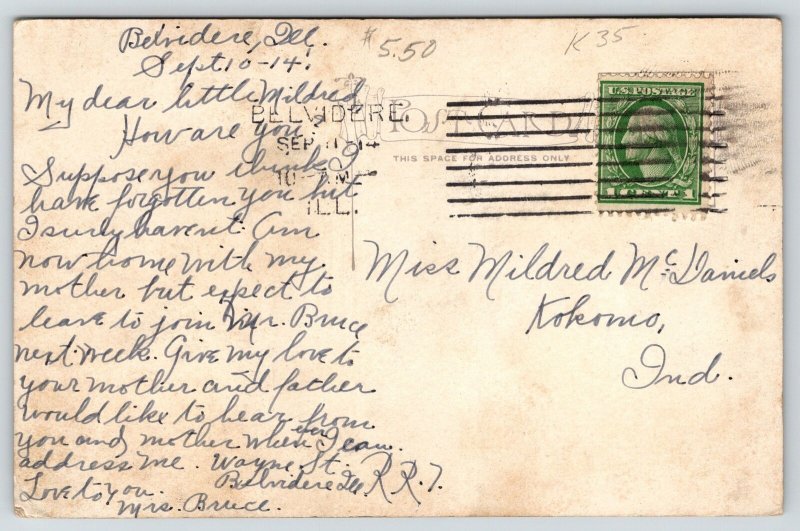 Belvidere, Ill.
Sept 10-14.
My dear little Mildred
How are you.
Suppose you think I
have forgotten you but
I sury havent. Am
now home with my
mother but expect to
leave to join Mr. Bruce
next week. Give my love to
your mother and father
would like to hear from
you and mother when ever I can.
address me. Wayne St. R.R.7.
Belvidere Ill
Love to you.
Mrs. Bruce.
$5.50
K35
BELVIDERE,
SEP 11 14
10-AM
ILL.
POST CARD
THIS SPACE FOR ADDRESS ONLY
U.S. POSTAGE
1 CENT 1
Miss Mildred McDaniels
Kokomo,
Ind.